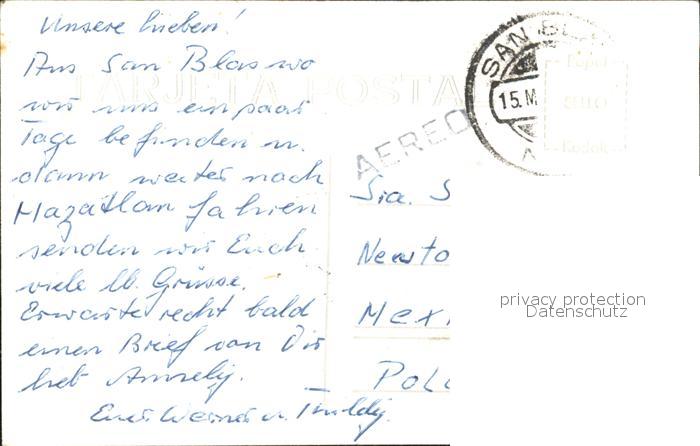 Unsere lieben!
Aus San Blas wo
wir uns ein paar
Tage befinden u.
dann weiter nach
Mazatlan fahren
senden wir Euch
viele lb. Grüsse.
Erwarte recht bald
einen Brief von Dir
lieb
Euer Werner u.
TARJETA POSTAL
AEREO
SAN BL
15. M
Kodak
Sra. S
Newto
Mexi
Pol
privacy protection
Datenschutz